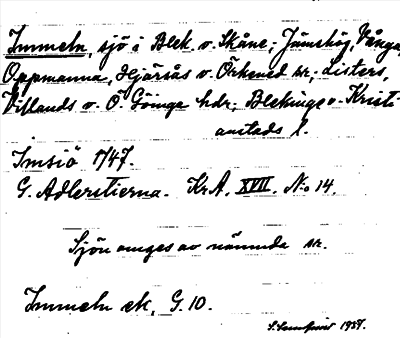 Immeln, sjö i Blek. o. Skåne; Jämshög, Vånga,
Oppmanna, Hjärsås o. Örkened sr.; Listers,
Villands o. Ö. Göinge hdr; Blekinge o. Kristi-
anstads l.
Imsiö 1747.
G. Adlerstierna. Kr.A. XVII. No 14.
Sjön omges av nämnda sr.
Immeln ek, G. 10.
1937.